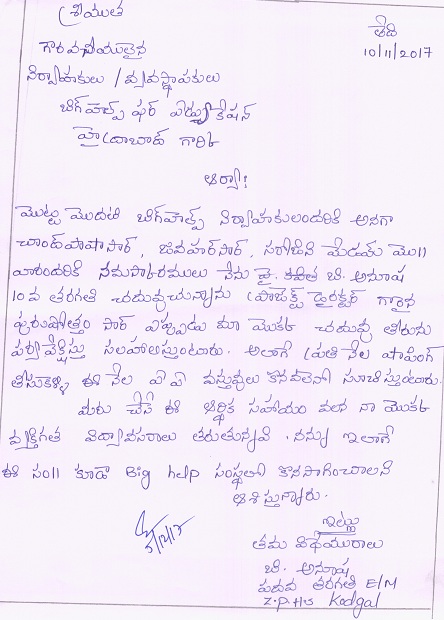 శ్రీయుత
తేది
10/11/2017
గౌరవనీయులైన
నిర్వాహకులు / వ్యవస్థాపకులు
బిగ్ హెల్ప్ ఫర్ ఎడ్యుకేషన్
హైదరాబాద్ గారికి
ఆర్యా!
మొట్టు మొదట బిగ్ హెల్ప్ నిర్వాహకులందరికి అనగా
చాంద్ పాషా సార్, జవహర్ సార్, సరోజిని మేడమ్ మొ||
వారందరికి నమస్కారములు నేను కవిత బి. అనూష
10వ తరగతి చదువుచున్నాను ప్రాజెక్ట్ డైరెక్టర్ గారైన
పురుషోత్తం సార్ ఎప్పుడు మా యొక్క చదువు తీరును
పర్యవేక్షిస్తు సలహాలిస్తుంటారు. అలాగే ప్రతి నెల షాపింగ్
తీసుకెళ్ళి ఈ నెల ఏ ఏ వస్తువులు కొనవలెనో సూచిస్తుంటారు.
మరు చేసే ఈ ఆర్థిక సహాయం వలన నా యొక్క
వ్యక్తిగత విద్యావసరాలు తీరుతున్నవి. నన్ను ఇలాగే
ఈ సం|| కూడా Big help సంస్థలో కొనసాగించాలని
ఆశిస్తున్నారు.
5/12/17
ఇట్లు
తమ విధేయురాలు
బి. అనూష
పదవ తరగతి E/M
Z.P.H.S Kodgal